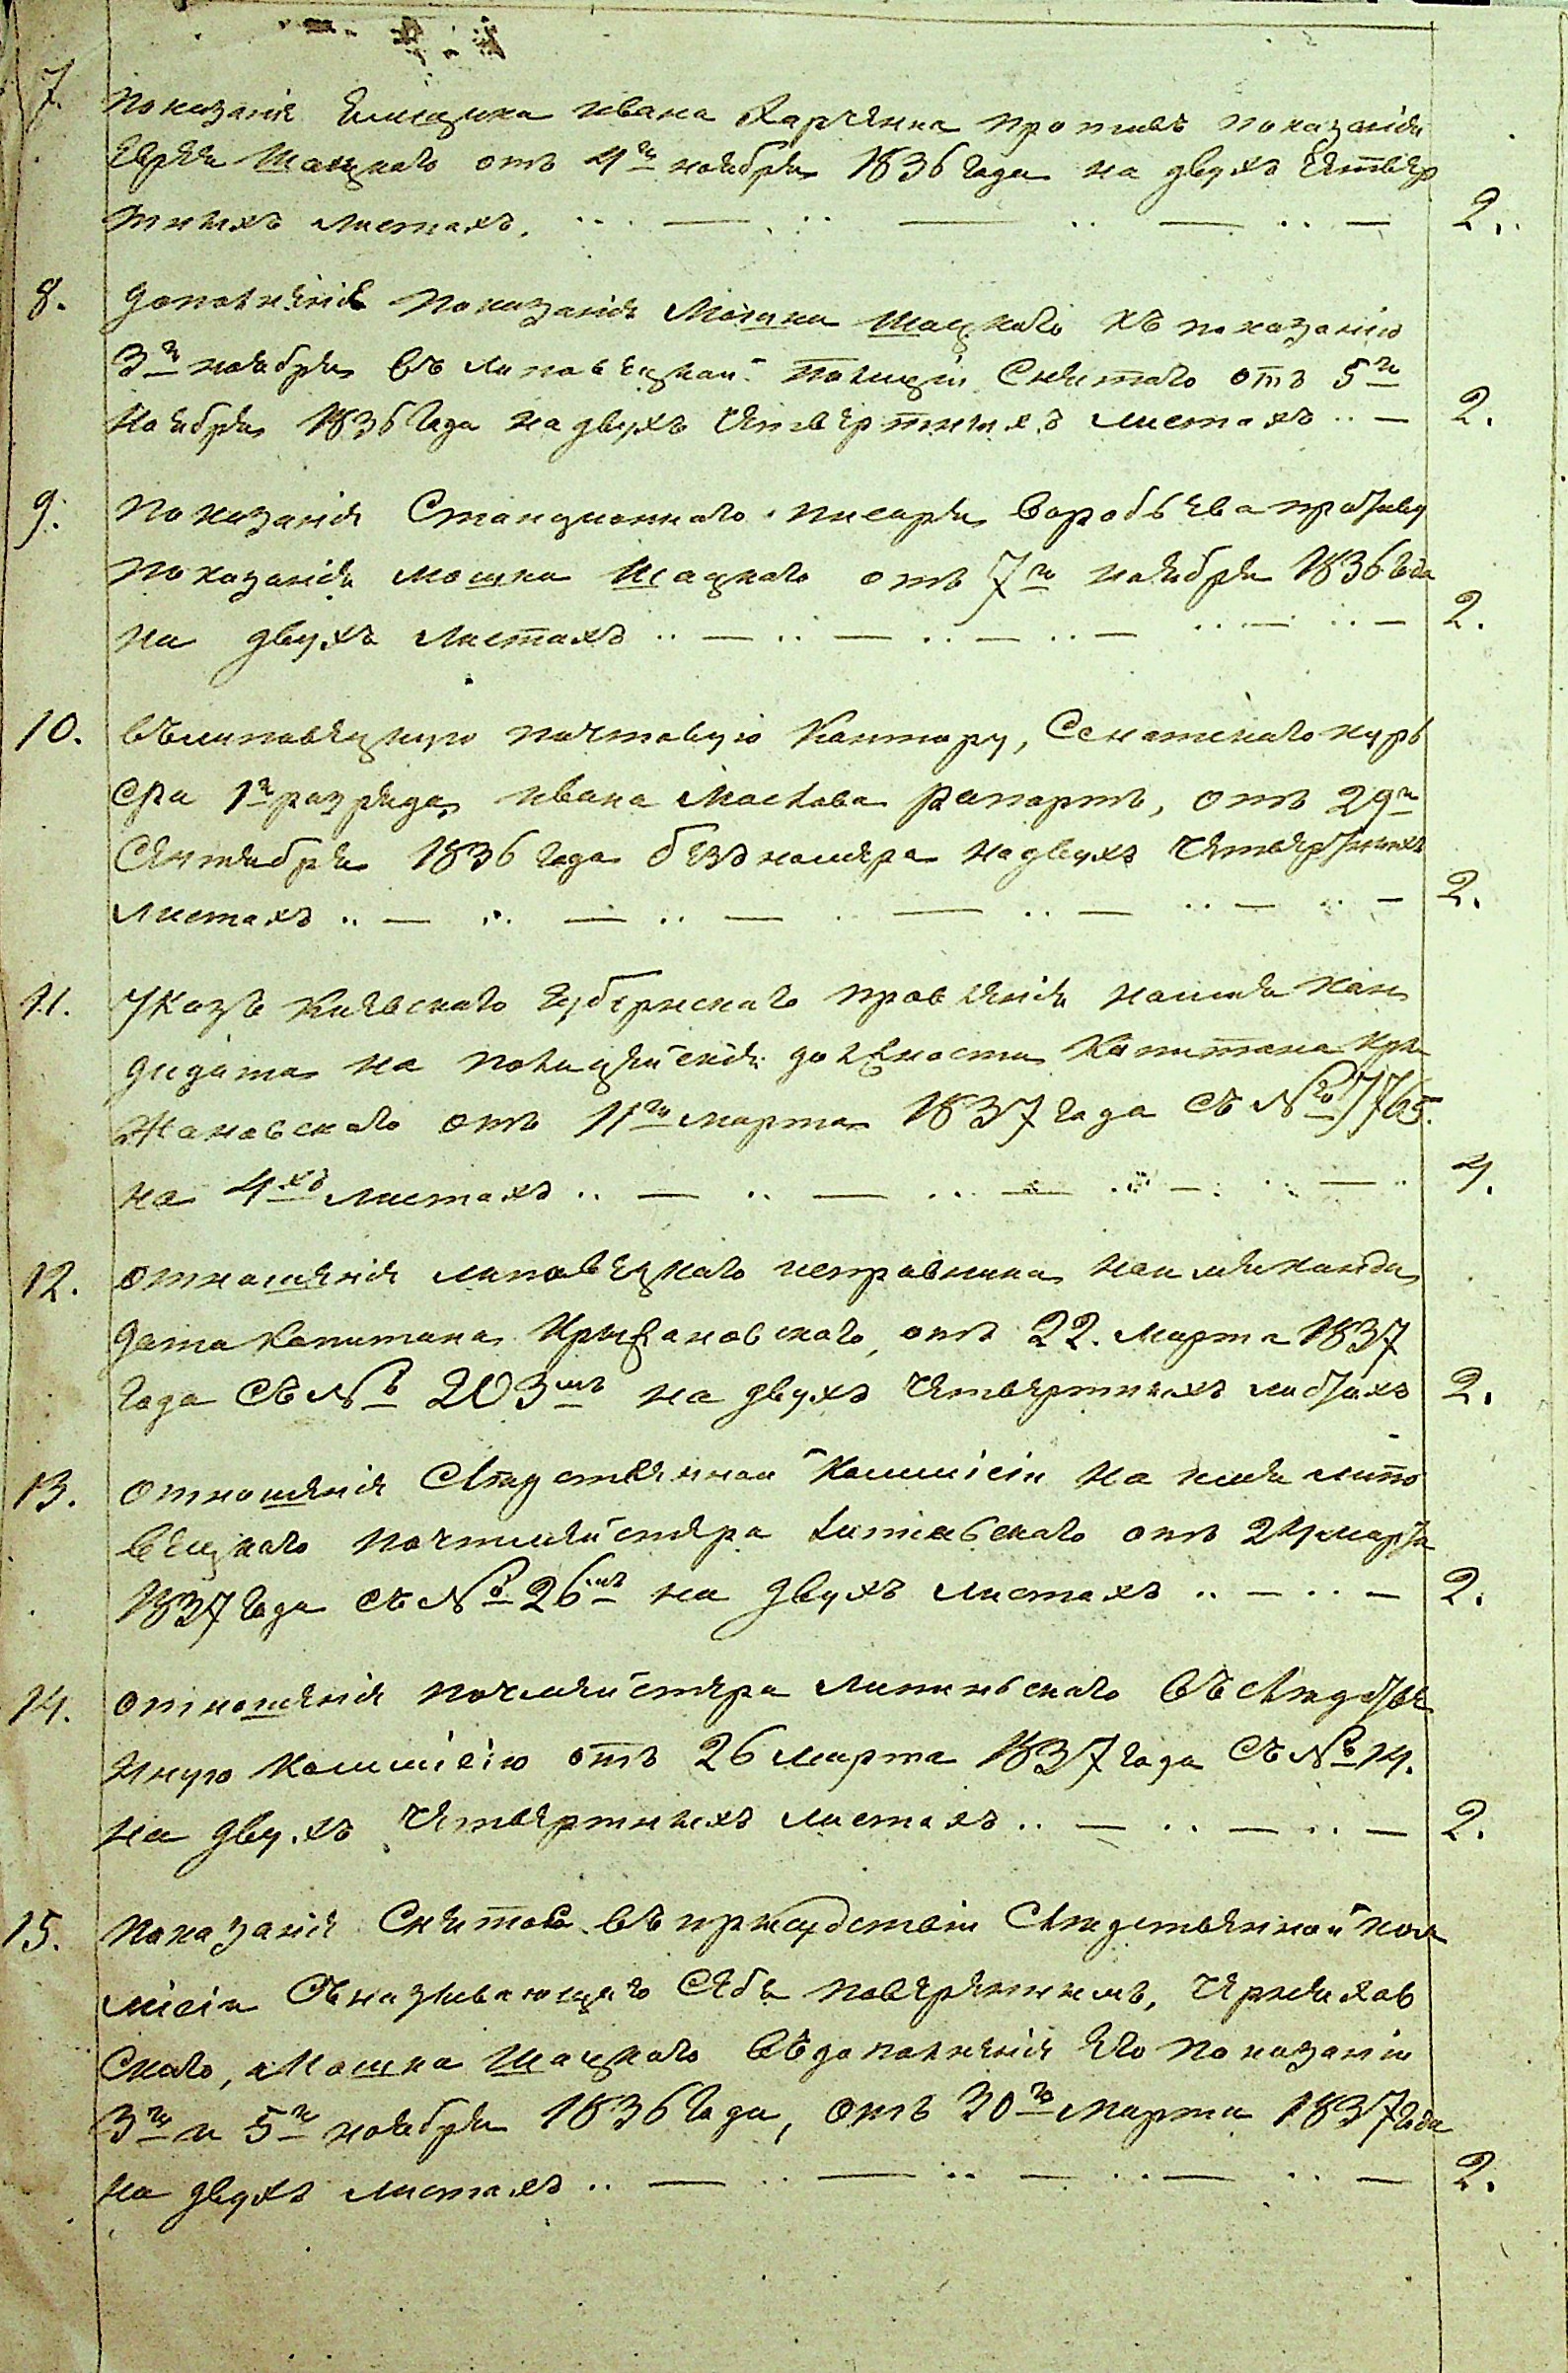 7. показанія Ямщика ивана Харченка противъ показанія
Еврея Шацкаго отъ 4го ноября 1836 года на двухъ Четвер
тныхъ листахъ. 2.
8. дополненія показанія Мошка Шацкаго къ показанію
3го ноября въ липовецкой полиціи Снятаго отъ 5го
Ноября 1836 года на двухъ Четвертныхъ листахъ 2.
9. показанія Станціоннаго писаря Воробьева противу
показанія мошка Шацкаго отъ 7го ноября 1836 года
на двухъ листахъ 2.
10. въ липовецкую почтовую Контору, Сенатскаго курь
ера 1го разряда ивана Маслова рапортъ, отъ 29го
Сентября 1836 года безъ номера на двухъ Четвертныхъ
листахъ 2.
11. Указъ Киевскаго Губернскаго правленія на имя Кан
дидата на полицейскія должности Капитана Кры
жановскаго отъ 11го марта 1837 года съ № 7765.
на 4хъ листахъ 4.
12. отношенія липовецкаго исправника на имя канди
дата Капитана Крыжановскаго, отъ 22. марта 1837
года съ № 203мъ на двухъ Четвертныхъ листахъ 2.
13. отношенія Следственной Коммісіи на имя липо
вецкаго почтмейстера Липинскаго отъ 24 марта
1837 года съ № 26мъ на двухъ листахъ 2.
14. отношенія почмейстера Липинскаго въ Следстве
нную Коммісію отъ 26 марта 1837 года съ № 14.
на двухъ Четвертныхъ листахъ 2.
15. показанія Снятое въ присудствіи Следственной ком
місіи Съ называющаго Себя повереннымъ, Чернихов
Скаго, Мошка Шацкаго въ дополненія Его показаніи
3го и 5го ноября 1836 года, отъ 30го марта 1837 года
на двухъ листахъ 2.